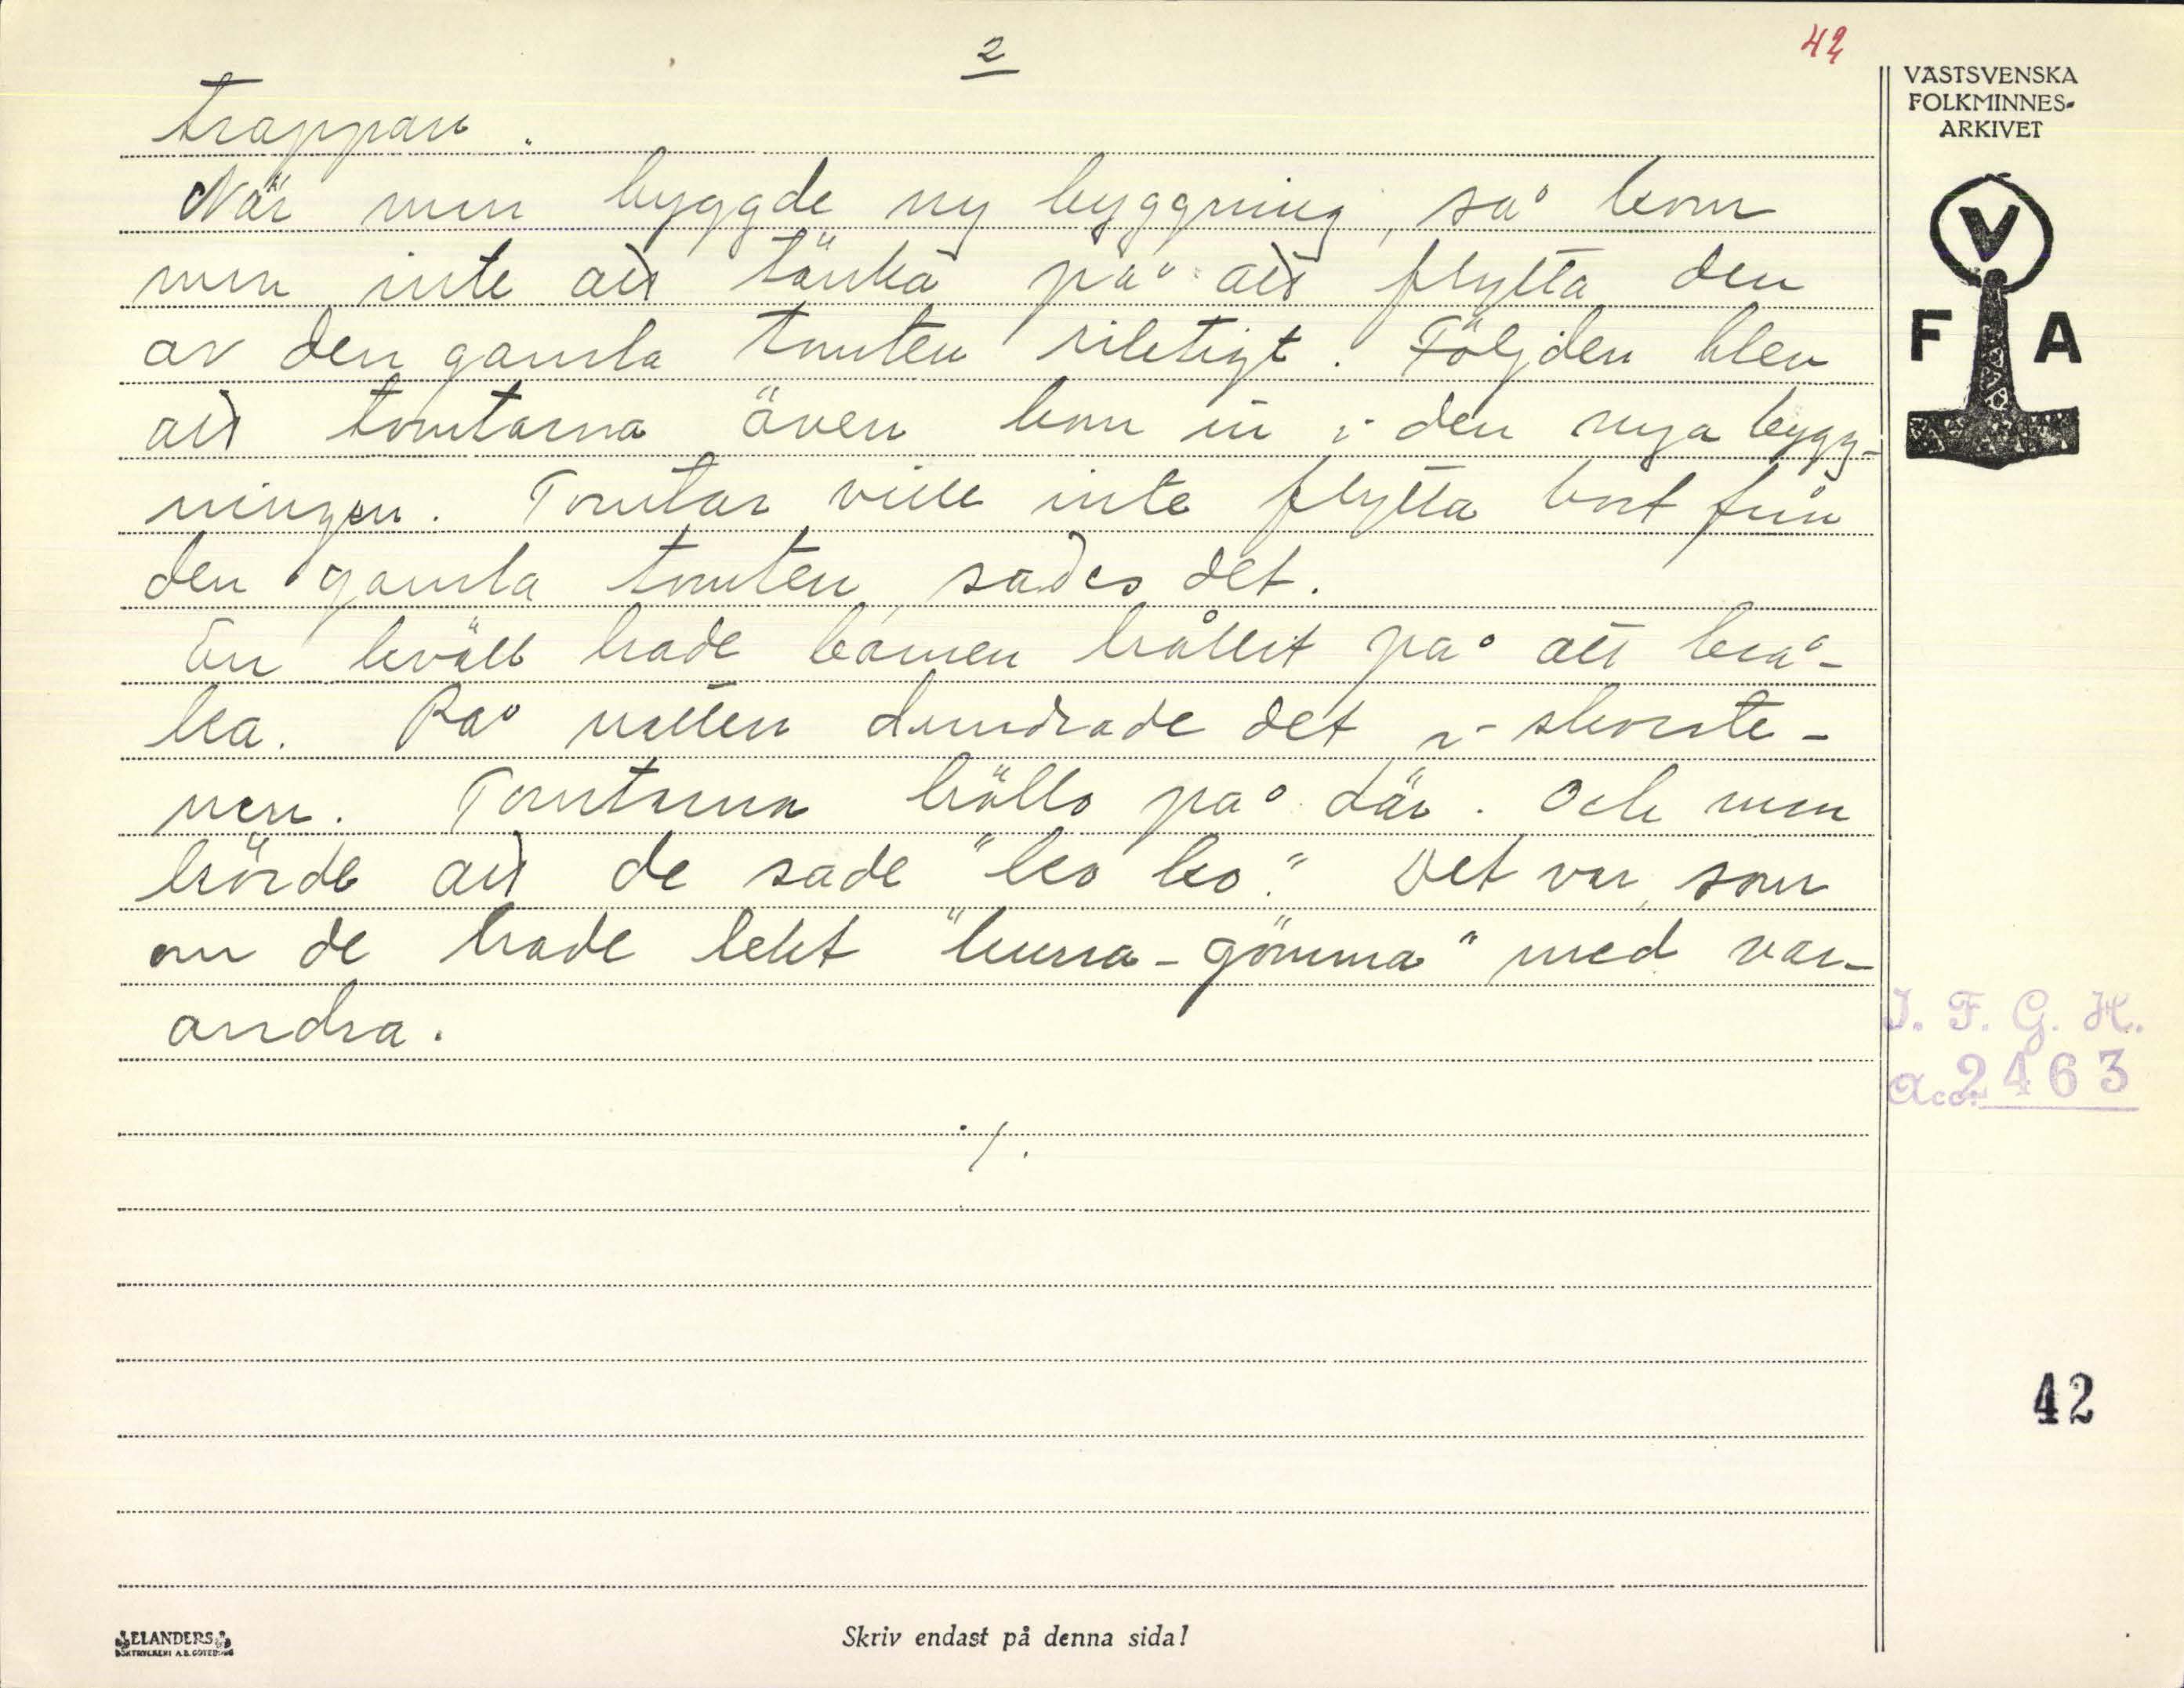 2
42
trappan.
När man byggde ny byggning, så kom
man inte att tänka på att flytta den
av den gamla tomten riktigt. Följden blev
att tomtarna även kom in i den nya bygg-
ningen. Tomtar ville inte flytta bort från
den gamla tomten, sades det.
En kväll hade barnen hållit på att brå-
ka. På natten dundrade det i skorste-
nen. Tomtarna höllo på där. Och man
hörde att de sade "ko ko." Det var som
om de hade lekt "kurra-gömma" med var-
andra.
./.
VÄSTSVENSKA
FOLKMINNES-
ARKIVET
V
F A
I. F. G. H.
Acc. 2463
42
ELANDERS
Skriv endast på denna sida!